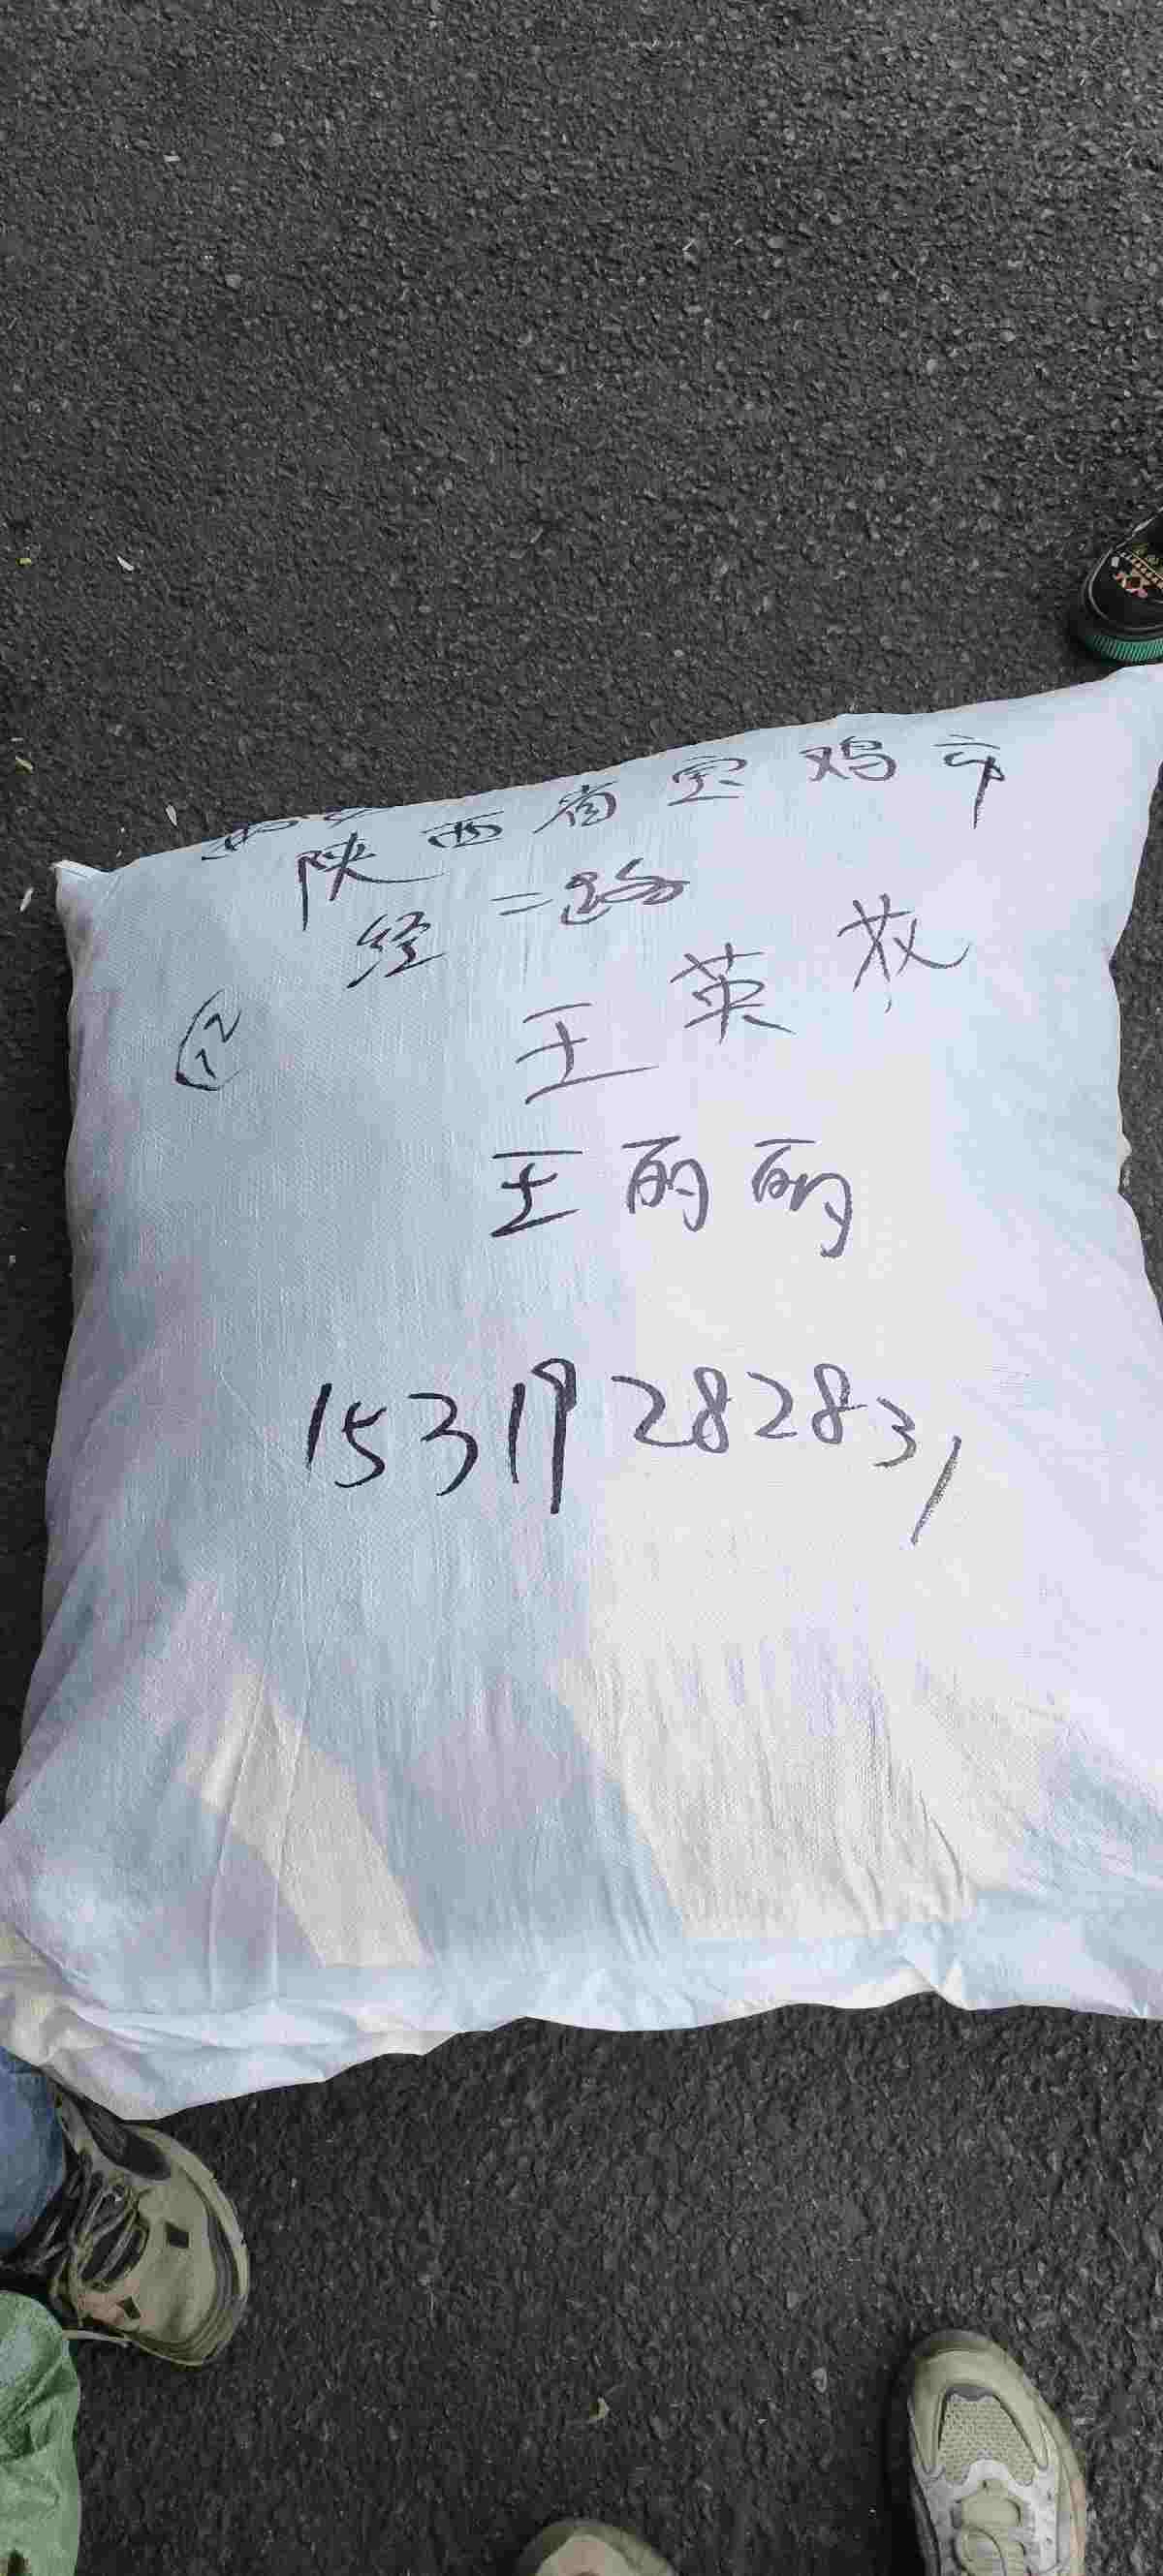 陕西省宝鸡市
经二路
⑫
王英
王丽丽
15319282831